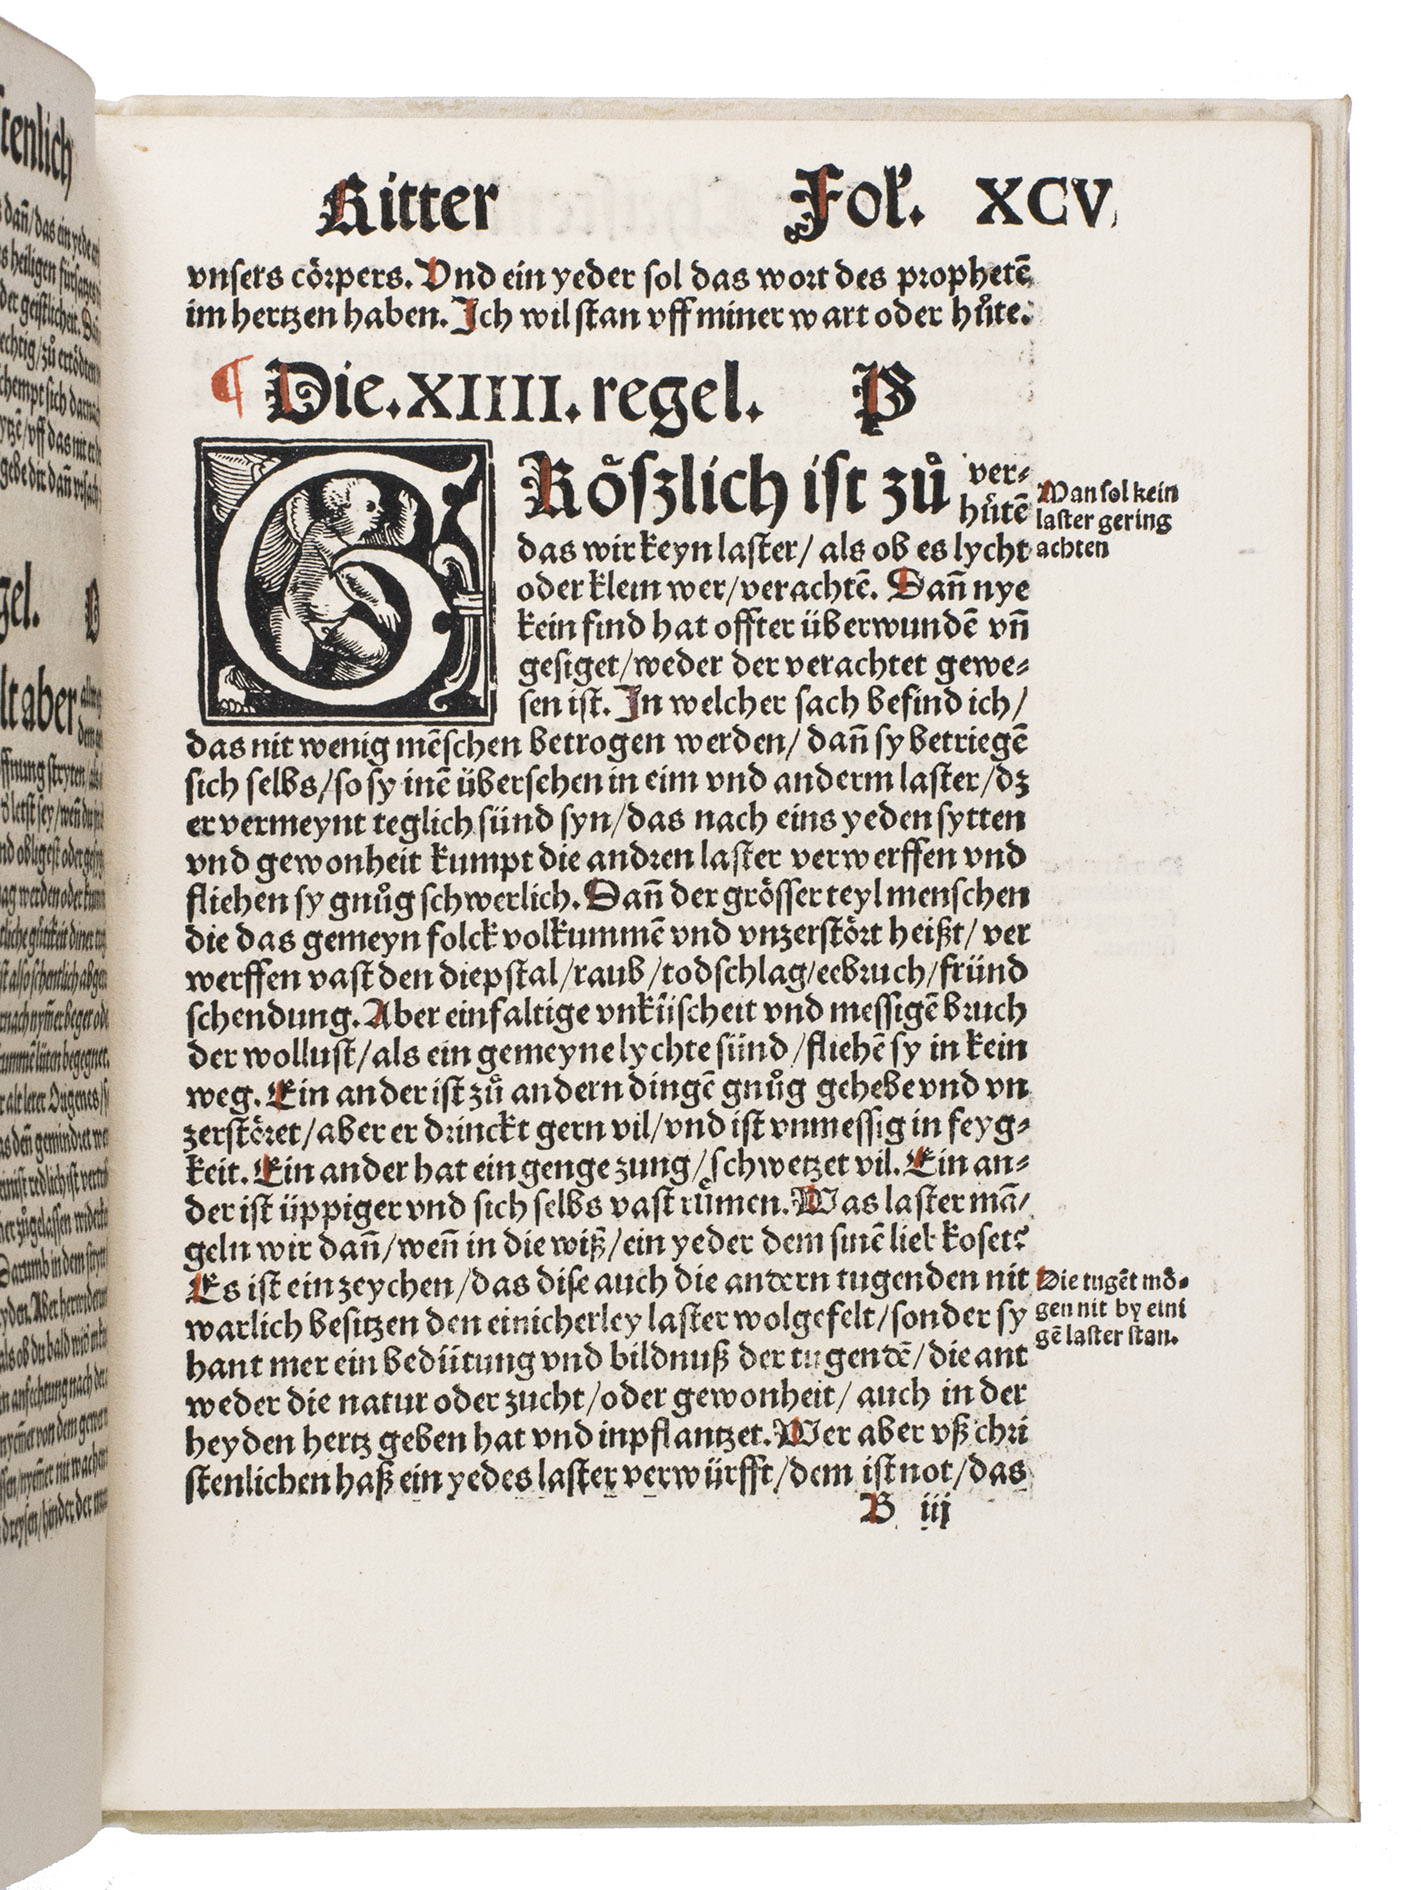 stenlich
gel.
lt aber
Ritter Fol. XCV
vnsers cörpers. Vnd ein yeder sol das wort des prophetē
im hertzen haben. Ich wil stan vff miner wart oder hůte.
¶ Die .XIIII. regel. B
GRöszlich ist zů ver⸗
hütē
das wir keyn laster/ als ob es lycht
oder klein wer/verachtē. Dañ nye
kein find hat offter überwundē vñ
gesiget/weder der verachtet gewe⸗
sen ist. In welcher sach befind ich/
das nit wenig mēschen betrogen werden/ dañ sy betriegē
sich selbs/so sy inē übersehen in eim vnd anderm laster/dz
er vermeynt teglich sünd syn/das nach eins yeden sytten
vnd gewonheit kumpt die andren laster verwerffen vnd
fliehen sy gnůg schwerlich. Dañ der grösser teyl menschen
die das gemeyn folck volkummē vnd vnzerstört heißt/ ver
werffen vast den diepstal/raub/todschlag/eebruch/fründ
schendung. Aber einfaltige vnküscheit vnd messigē bruch
der wollust/als ein gemeyne lychte sünd/fliehē sy in kein
weg. Ein ander ist zů andern dingē gnůg gehebe vnd vn
zerstöret/aber er drinckt gern vil/vnd ist vnmessig in feyg⸗
keit. Ein ander hat ein genge zung/schwetzet vil. Ein an⸗
der ist üppiger vnd sich selbs vast růmen. Was laster mā/
geln wir dañ/weñ in die wiß/ein yeder dem sinē lieb koset?
Es ist ein zeychen/das dise auch die andern tugenden nit
warlich besitzen den einicherley laster wolgefelt/sonder sy
hant mer ein bedütung vnd bildnuß der tugendē/die ant
weder die natur oder zucht/oder gewonheit/ auch in der
heyden hertz geben hat vnd inpflantzet. Wer aber vß chri
stenlichen haß ein yedes laster verwürfft/dem ist not/das
B iij
Man sol kein
laster gering
achten
Die tugēt mö⸗
gen nit by eini
gē laster stan.